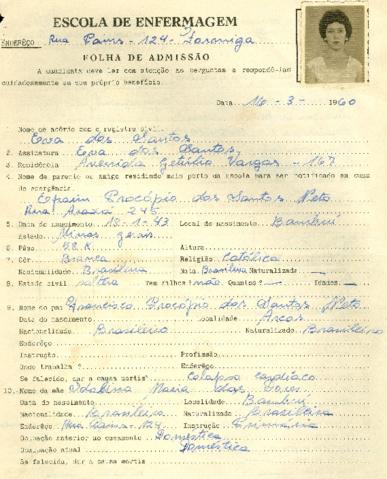 ESCOLA DE ENFERMAGEM
ENDERÊÇO Rua - 124 - Formiga
FOLHA DE ADMISSÃO
A candidata deve ler com atenção as perguntas e respondê-las
cuidadosamente em seu próprio benefício.
Data 16 - 3 - 1960
Nome de acôrdo com o registro civil.
Eva dos Santos
2. Assinatura Eva dos Santos,
3. Residência Avenida Getúlio Vargas - 167
4. Nome do parente ou amigo residindo mais perto da escola para ser notificado em caso
de emergência.
Efraim Procópio dos Santos Neto
Rua Araxá 245
5. Data do nascimento 18-1-43 Local do nascimento Bambuí
Estado Minas gerais
6. Pêso 58.K Altura
7. Côr Branca Religião Católica
Nacionalidade Brasileira Nata Brasileira Naturalizada
8. Estado civil solteira Tem filhos? não Quantos? — Idades. —
9. Nome do pai Francisco Procópio dos Santos Neto
Data do nascimento Localidade Arcos
Nacionalidade Brasileiro Naturalizado Brasileiro
Enderêço
Instrução. Profissão
Onde trabalha ? Enderêço
Se falecido, dar a causa mortis Colapso cardíaco
10. Nome da mãe Maria das
Data do nascimento Localidade Bambuí
Nacionalidade Brasileira Naturalizado Brasileira
Enderêço Rua - 124 - Instrução Primária
Ocupação anterior ao casamento Doméstica
Ocupação atual doméstica
Se falecida, dar a causa mortis